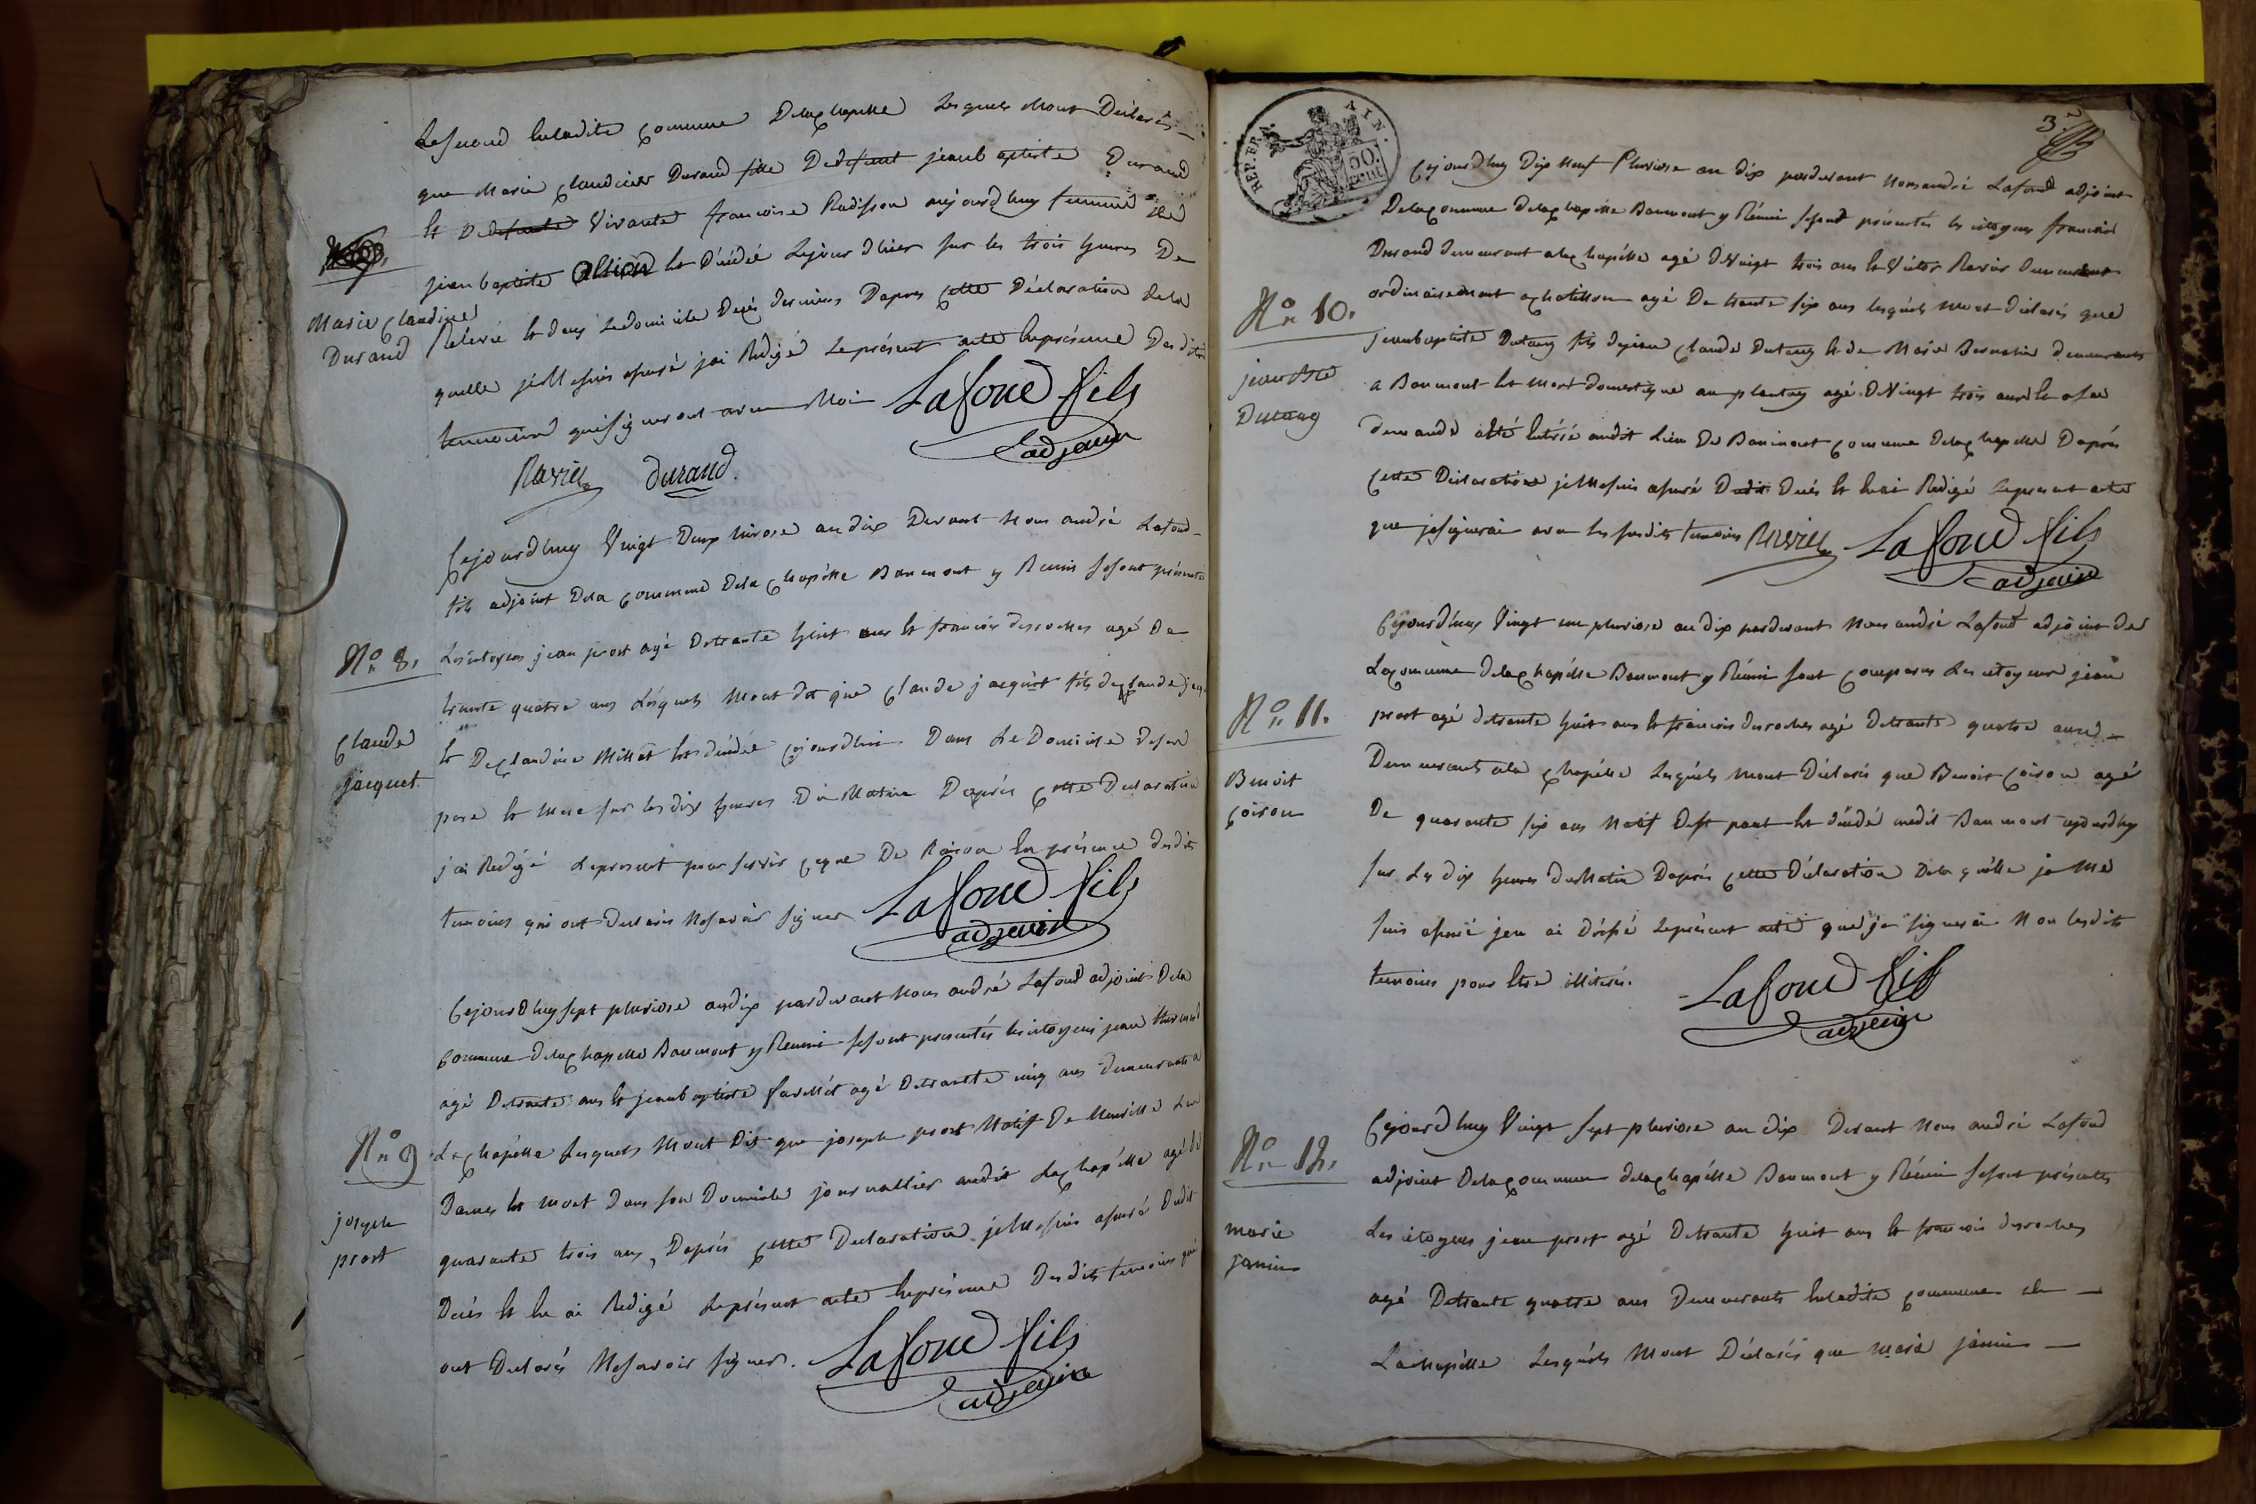 Lesquels M'ont Déclarés
que Marie Claudine Durand fille Dedefunt jeanbaptiste Durand
et Dedefunte Vivante françoise Radisson aujourdhuy femme de
jeanbaptiste est Décédé Lejour d'hier sur les trois heures De
Relevé et dans Ledomicile Dapres Cette Déclaration dela
quelle jeMesuis assuré j'ai Redigé Leprésent acte enprésence Desdits
temoins quisigneront avec Moi Lafond fils
adjoint
Ravier durand.
Marie Claudine
Durand
Cejourdhuy Vingt Deux nivose an dix Devant Nous andré Lafond
fils adjoint Dela Commune Dela Chapelle Baumont y Reunis sesont présentés
No 8.
Lescitoyens jean prost agé Detrante huit ans et françois desroches agé De
trante quatre ans Lesquels Mont dit que Claude jacquet fils deClaude jacq
Claude
jacquet
et DeClaudine Millet est décédé Cejourdhui Dans Le Domicile deson
pere et mere sur les dix heures Du Matin Daprés Cette Declaration
j'ai Redigé Lepresent pour servir Ceque De Raison En présence desdits
temoins qui ont Declarés Nesavoir signer Lafond fils
adjoint
Cejourdhuy sept pluviose andix pardevant Nous andré Lafond adjoint Dela
Commune DelaChapelle Baumont y Reunis sesont presentés lescitoyens jean
agé Detrante ans et jeanbaptiste agé Detrante cinq ans demeurants a
No 9
LaChapelle Lesquels Mont Dit que joseph prost Natif De
joseph
prost
est mort Dans son Domicile journallier audit LaChapelle agé de
quarante trois ans, Daprés Cette Declaration jeMesuis assuré Dudit
Decés et en ai Redigé Leprésent acte enprésence Desdits temoins qui
ont Declarés Nesavoir signer. Lafond fils
adjoint
REP. FRA. AIN.
50.
cent
3.
Cejourdhuy Dix Neuf Pluviose an dix pardevant Nousandré Lafond adjoint
DelaCommune delaChapelle Baumont y Réunis sesont présentés les citoyens françois
Durand demeurant alaChapelle agé DeVingt trois ans et Victor Ravier demeurant
No 10.
ordinairement achatillon agé De trante six ans Lesquels Mont Déclarés que
jeanbaptiste Dutang fils dejean Claude Dutang et de Marie Bernardin demeurants
jean Bte
Dutang
a Baumont est mort domestique au plantay agé DeVingt trois ans et a son
demandé a été enterré audit Lieu De Baumont Commune delaChapelle Daprés
Cette Declaration jeMesuis assuré Dudit Decés et enai Redigé Lepresent acte
que jesignerai avec les susdits temoins Ravier Lafond fils
adjoint
Cejourdhuy Vingt un pluviose an dix pardevant Nous andré Lafond adjoint de
Lacommune delaChapelle Baumont y Réunis sont Comparus Lescitoyens jean
No 11.
prost agé detrante huit ans et françois desroches agé Detrante quatre ans
Demeurants ala Chapelle Lesquels Mont Déclarés que Benoit Coiron agé
Benoit
Coiron
De quarante six ans Natif est décédé audit Baumont aujourdhuy
sur Les dix heures duMatin Daprés Cette Déclaration Dela quelle je Me
suis assuré jen ai dréssé Leprésent acte que je signerai Non lesdits
temoins pour Etre illiterés. Lafond fils
adjoint
Cejourdhuy Vingt sept pluviose an dix Devant Nous andré Lafond
No 12.
adjoint DelaCommune delaChapelle Baumont y Réunis sesont présentés
marie
janin
Les citoyens jean prost agé Detrante huit ans et françois desroches
agé Detrante quatre ans Demeurants Enladite Commune de
Lachapelle Lesquels Mont Déclarés que marie janin